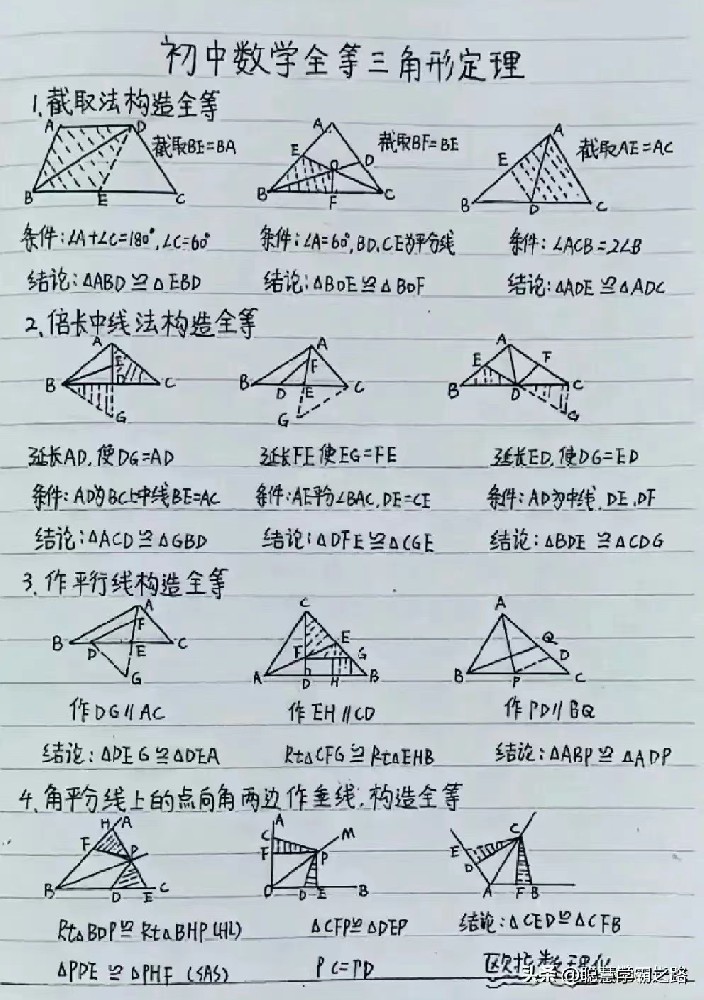 初中数学全等三角形定理
1.截取法构造全等
A D 截取BE=BA
B E C
A E D O 截取BF=BE
B F C
A E 截取AE=AC
B D C
条件:∠A+∠C=180°,∠C=60° 条件:∠A=60°,BD,CE为平分线 条件:∠ACB=2∠B
结论:△ABD≌△EBD 结论:△BOE≌△BOF 结论:△ADE≌△ADC
2.倍长中线法构造全等
A E B D C G
A F B D E C G
A E F B D C G
延长AD,使DG=AD 延长FE使EG=FE 延长ED,使DG=ED
条件:AD为BC上中线BE=AC 条件:AE平分∠BAC,DE=CE 条件:AD为中线,DE,DF
结论:△ACD≌△GBD 结论:△DFE≌△CGE 结论:△BDE≌△CDG
3.作平行线构造全等
A F B D E C G
C E F G A D H B
A Q D B P C
作DG∥AC 作EH∥CD 作PD∥BQ
结论:△DEG≌△DEA Rt△CFG≌Rt△EHB 结论:△ABP≌△ADP
4.角平分线上的点向角两边作垂线,构造全等
H A F P B D E C
A C M F P O D E B
C E D A F B
Rt△BDP≌Rt△BHP(HL) △CFP≌△DEP 结论:△CED≌△CFB
△PDE≌△PHF(SAS) PC=PD
头条@聪慧学霸之路